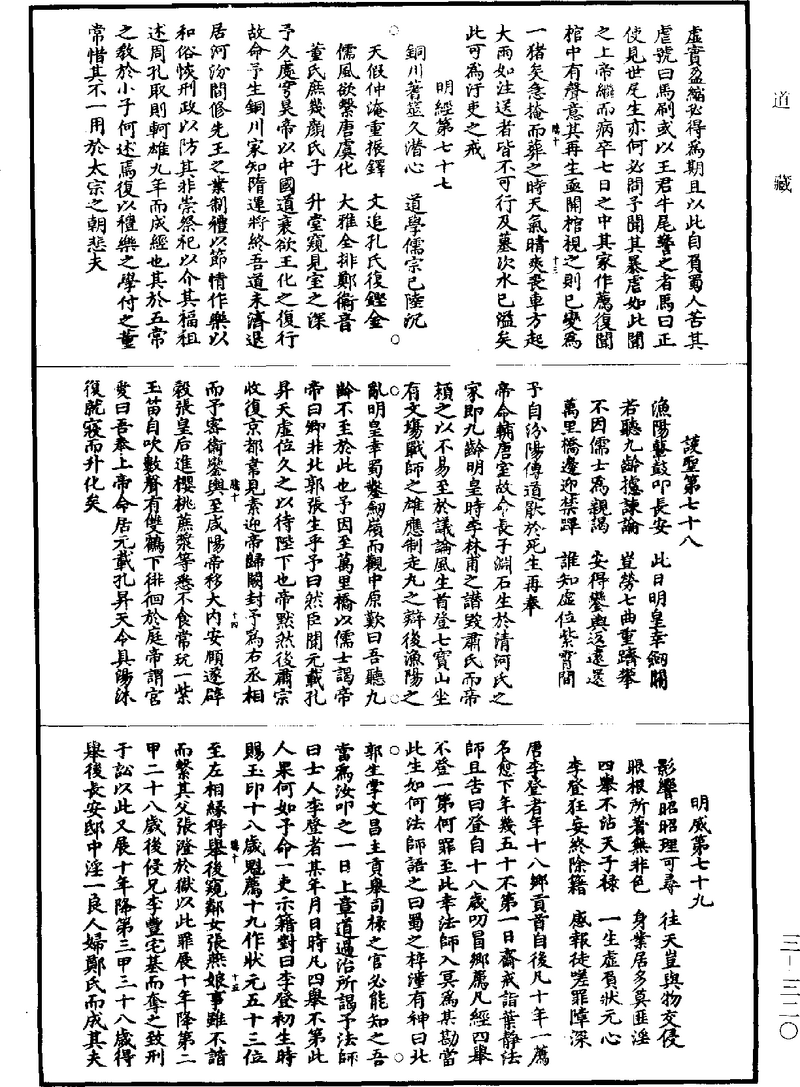 道藏
虛實盈縮必得為期且以此自負蜀人苦其
虐號曰馬刷或以王君牛尾警之者馬曰正
使見世尾生亦何必問予聞其暴虐如此聞
之上帝繼而病卒七日之中其家作薦復聞
棺中有聲意其再生亟開棺視之則已變為
一猪矣急掩而葬之時天氣晴爽喪車方起
大雨如注送者皆不可行及墓次水已溢矣
此可為汙吏之戒
明經第七十七
銅川著筵久潛心　道學儒宗已陸沉
天假仲淹重振鐸　文追孔氏復鏗金
儒風欲繫唐虞化　大雅全排鄭衛音
董氏庶幾顏氏子　升堂窺見室之深
予久處穹昊帝以中國道衰欲王化之復行
故命予生銅川家知隋運將終吾道未濟退
居河汾間修先王之業制禮以節情作樂以
和俗恢刑政以防其非崇祭祀以介其福祖
述周孔取則軻雄九年而成經也其於五常
之教於小子何述焉復以禮樂之學付之董
常惜其不一用於太宗之朝悲夫
護聖第七十八
漁陽鼙鼓叩長安　此日明皇幸劒關
若聽九齡攄諫論　豈勞七曲重躋攀
不因儒士為親謁　安得鑾輿返遠還
萬里橋邊迎禁蹕　誰知虛位紫霄間
予自汾陽傳道厭於死生再奉
帝命輔唐室故命長子淵石生於清河氏之
家即九齡明皇時李林甫之譖毀肅氏而帝
頼之以不易至於議論風生首登七寶山坐
有文塲戰師之雄應制走丸之辯後漁陽之
亂明皇幸蜀鑿劒嶺而觀中原歎曰吾聽九
齡不至於此也予因至萬里橋以儒士謁帝
帝曰卿非北郭張生乎予曰然臣聞元載孔
昇天虛位久之以待陛下也帝默然後肅宗
收復京都韋見素迎帝歸闕封予為右丞相
而予密衛鑾輿至咸陽帝移大內安願遂辟
榖張皇后進櫻桃蔗漿等悉不食常玩一紫
玉笛自吹數聲有雙鶴下徘徊於庭帝謂宮
愛曰吾奉上帝命居元載孔昇天令具湯沐
復就寢而升化矣
明威第七十九
影響昭昭理可尋　往天豈與物交侵
眼根所著無非色　身業居多莫匪淫
四舉不沾天子祿　一生虛負狀元心
李登狂妄終除籍　感報徒嗟罪障深
唐李登者年十八鄉貢首自後凡十年一薦
名愈下年幾五十不第一日齋戒詣葉靜法
師且告曰登自十八歲叨冒鄉薦凡經四舉
不登一第何罪至此幸法師入冥為其勘當
此生如何法師語之曰蜀之梓潼有神曰北
郭生掌文昌主貢舉司祿之官必能知之吾
當為汝叩之一日上章道過治所謁予法師
曰士人李登者某年月日時凡四舉不第此
人果何如予命一吏示籍對曰李登初生時
賜玉印十八歲魁薦十九作狀元五十三位
至左相緣得舉後窺鄰女張燕娘事雖不諧
而繫其父張澄於獄以此罪展十年降第二
甲二十八歲後侵兄李豐宅基而奪之致刑
于訟以此又展十年降第三甲三十八歲得
舉後長安邸中淫一良人婦鄭氏而成其夫
三—三二〇